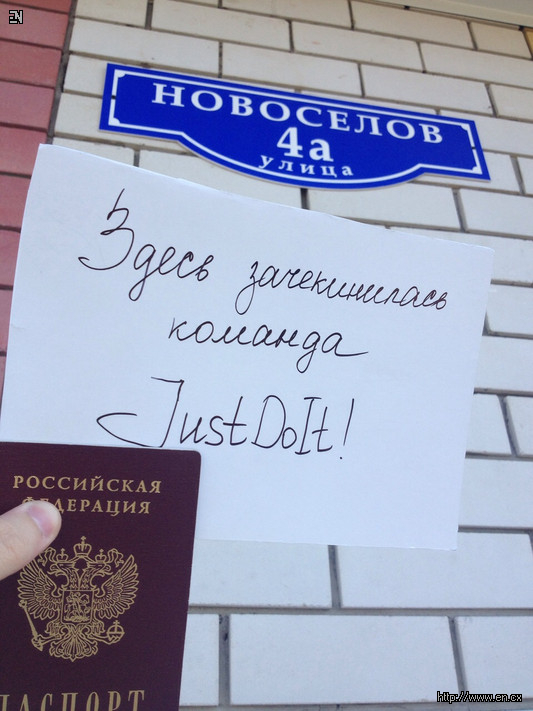 EN
НОВОСЕЛОВ
4а
улица
Здесь зачекинилась
команда
JustDoIt!
РОССИЙСКАЯ
ФЕДЕРАЦИЯ
ПАСПОРТ
http://www.en.cx